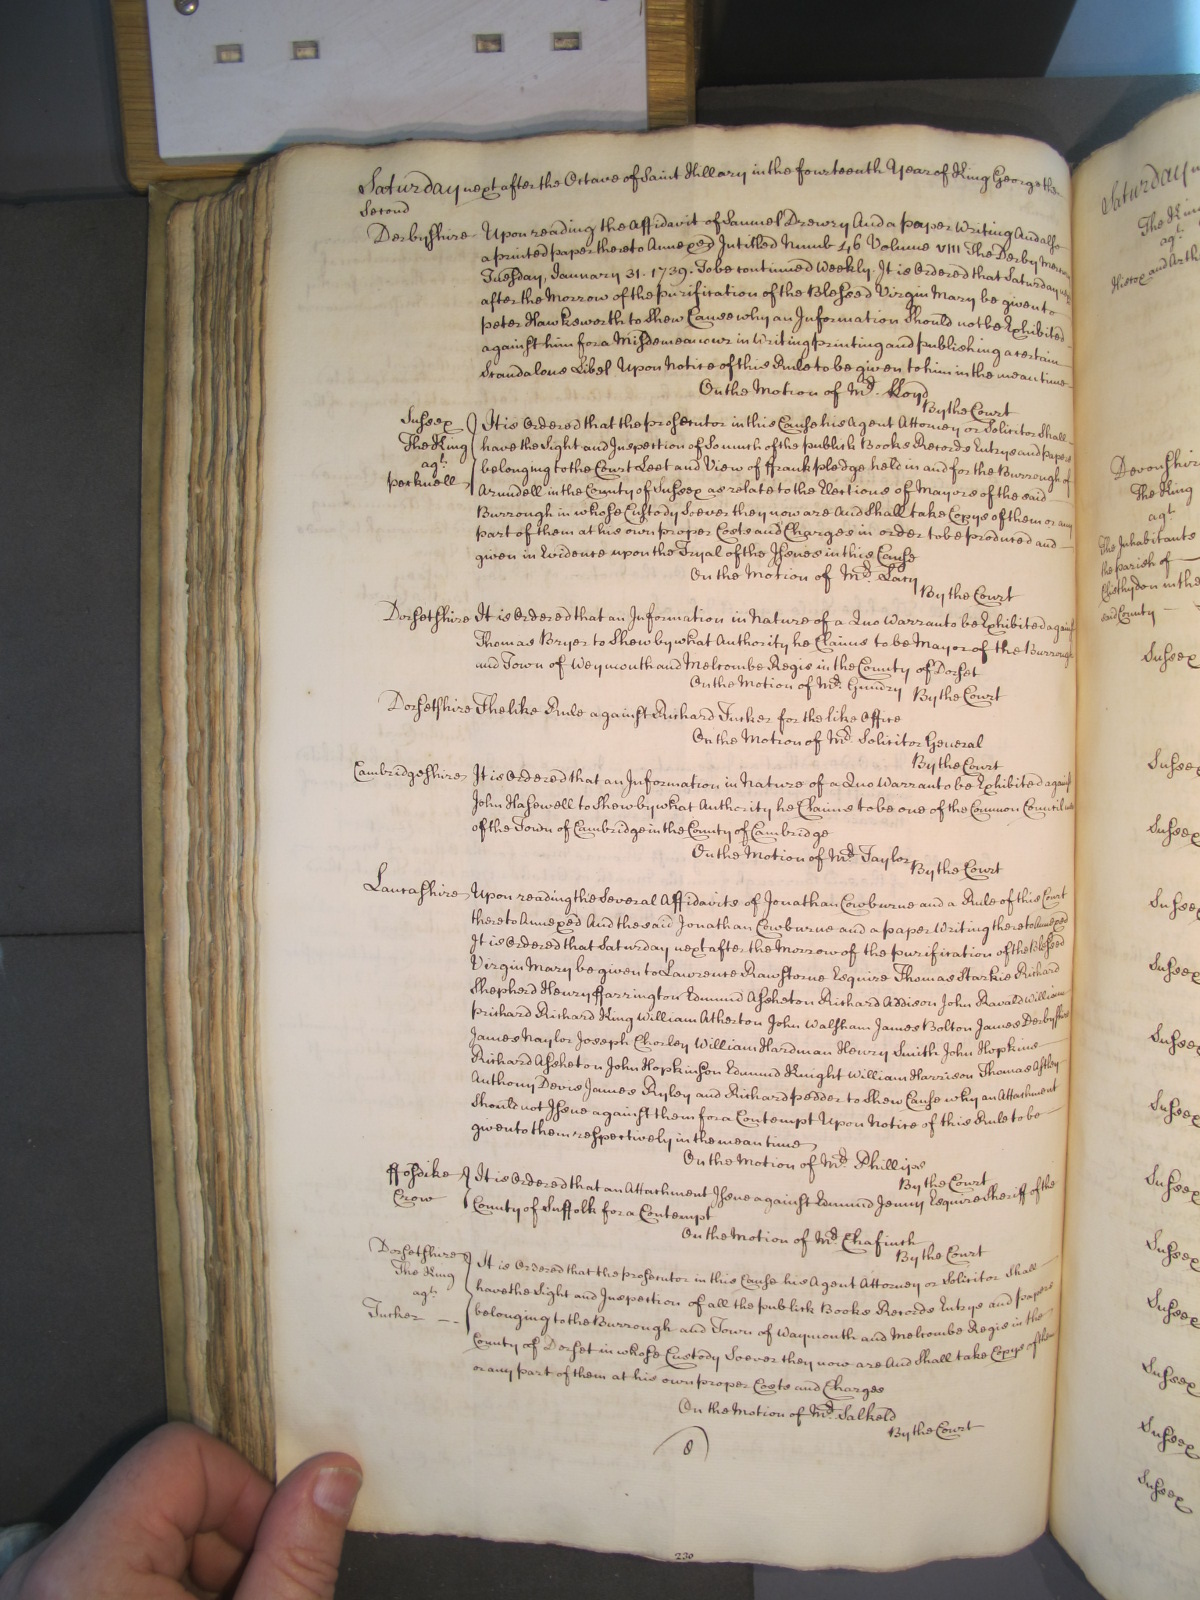 Saturday next after the Octave of Saint Hillary in the fourteenth Year of King George the
Second
Derbyshire Upon reading the Affidavit of Samuel Drewry And a paper Writing And also
a printed paper thereto Annexed Intitled Numb 46 Volume VIII The Derby Mercury
Tuesday, January 31. 1739. To be continued Weekly. It is Ordered that Saturday next
after the Morrow of the purification of the Blessed Virgin Mary be given to
peter Hawksworth to Shew Cause why an Information Should not be Exhibited
against him for a Misdemeanour in Writing printing and publishing a certain
Scandalous Libel Upon Notice of this Rule to be given to him in the mean time
On the Motion of Mr. Lloyd
By the Court
Sussex
The King
agt.
pecknell
It is Ordered that the prosecutor in this Cause his Agent Attorney or Solicitor Shall
have the Sight and Inspection of So much of the publick Books Records Entrys and papers
belonging to the Court Leet and View of ffrankpledge held in and for the Burrough of
Arundell in the County of Sussex as relate to the Elections of Mayors of the said
Burrough in whose Custody Soever they now are And Shall take Copys of them or any
part of them at his own proper Costs and Charges in order to be produced and
given in Evidence upon the Tryal of the Issues in this Cause
On the Motion of Mr. Lacy
By the Court
Dorsetshire It is Ordered that an Information in Nature of a Quo Warranto be Exhibited against
Thomas Bryer to Shew by what Authority he Claims to be Mayor of the Burrough
and Town of Weymouth and Melcombe Regis in the County of Dorset
On the Motion of Mr. Gundry By the Court
Dorsetshire The like Rule against Richard Tucker for the like Office
On the Motion of Mr. Solicitor General
By the Court
Cambridgeshire It is Ordered that an Information in Nature of a Quo Warranto be Exhibited against
John Hasewell to Shew by what Authority he Claims to be one of the Common Council
of the Town of Cambridge in the County of Cambridge
On the Motion of Mr. Taylor
By the Court
Lancashire Upon reading the Several Affidavits of Jonathan Cowburne and a Rule of this Court
thereto Annexed And the said Jonathan Cowburne and a paper Writing thereto Annexed
It is Ordered that Saturday next after the Morrow of the purification of the Blessed
Virgin Mary be given to Lawrence Rawstorne Esquire Thomas Starkie Richard
Shepherd Henry ffarrington Edmund Assheton Richard Addison John Ravald William
prichard Richard King William Atherton John Walsham James Bolton James Derbyshire
James Naylor Joseph Chorley William Hardman Henry Smith John Hopkins
Richard Assheton John Hopkinson Edmund Knight William Harrison Thomas Astley
Anthony Devis James Ryley and Richard pedder to Shew Cause why an Attachment
Should not Issue against them for a Contempt Upon Notice of this Rule to be
given to them respectively in the mean time
On the Motion of Mr. Phillips
By the Court
ffosdike
Crow
It is Ordered that an Attachment Issue against Edmund Jenny Esquire Sheriff of the
County of Suffolk for a Contempt
On the Motion of Mr. Chafinch
By the Court
Dorsetshire
The King
agt.
Tucker
It is Ordered that the prosecutor in this Cause his Agent Attorney or Solicitor Shall
have the Sight and Inspection of all the publick Books Records Entrys and papers
belonging to the Burrough and Town of Waymouth and Melcombe Regis in the
County of Dorset in whose Custody Soever they now are And Shall take Copys of them
or any part of them at his own proper Costs and Charges
On the Motion of Mr. Salkeld
By the Court
8
230
Saturday
The King
agt.
Devonshire
The King
agt.
The Inhabitants
the parish of
in the
said County
Sussex
Sussex
Sussex
Sussex
Sussex
Sussex
Sussex
Sussex
Sussex
Sussex
Sussex
Sussex
Sussex